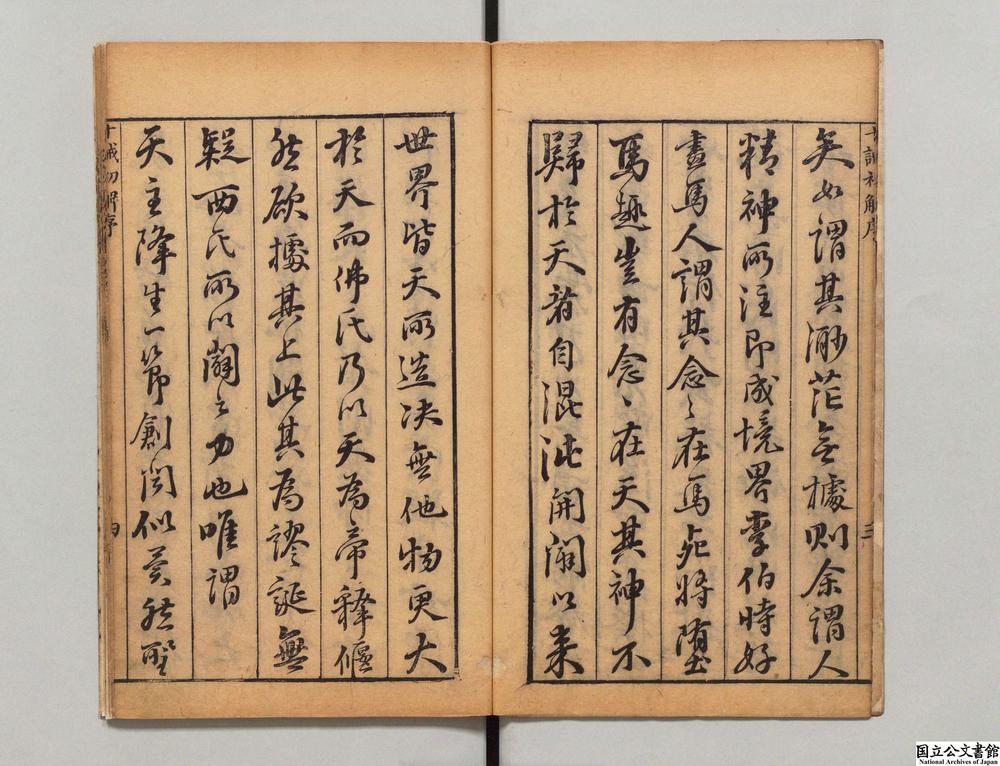 十誡初解序
三
矣如謂其渺茫無據則余謂人
精神所注即成境界李伯時好
畫馬人謂其念〻在馬死將墮
馬趣豈有念〻在天其神不
歸於天者自混沌開闢以來
世界皆天所造决無他物更大
於天而佛氏乃以天為帝釋偃
然欲據其上此其為謬誕無
疑西氏所以闢之力也唯謂
天主降生一節創聞似異然聖
十誡初解序
四
国立公文書館
National Archives of Japan